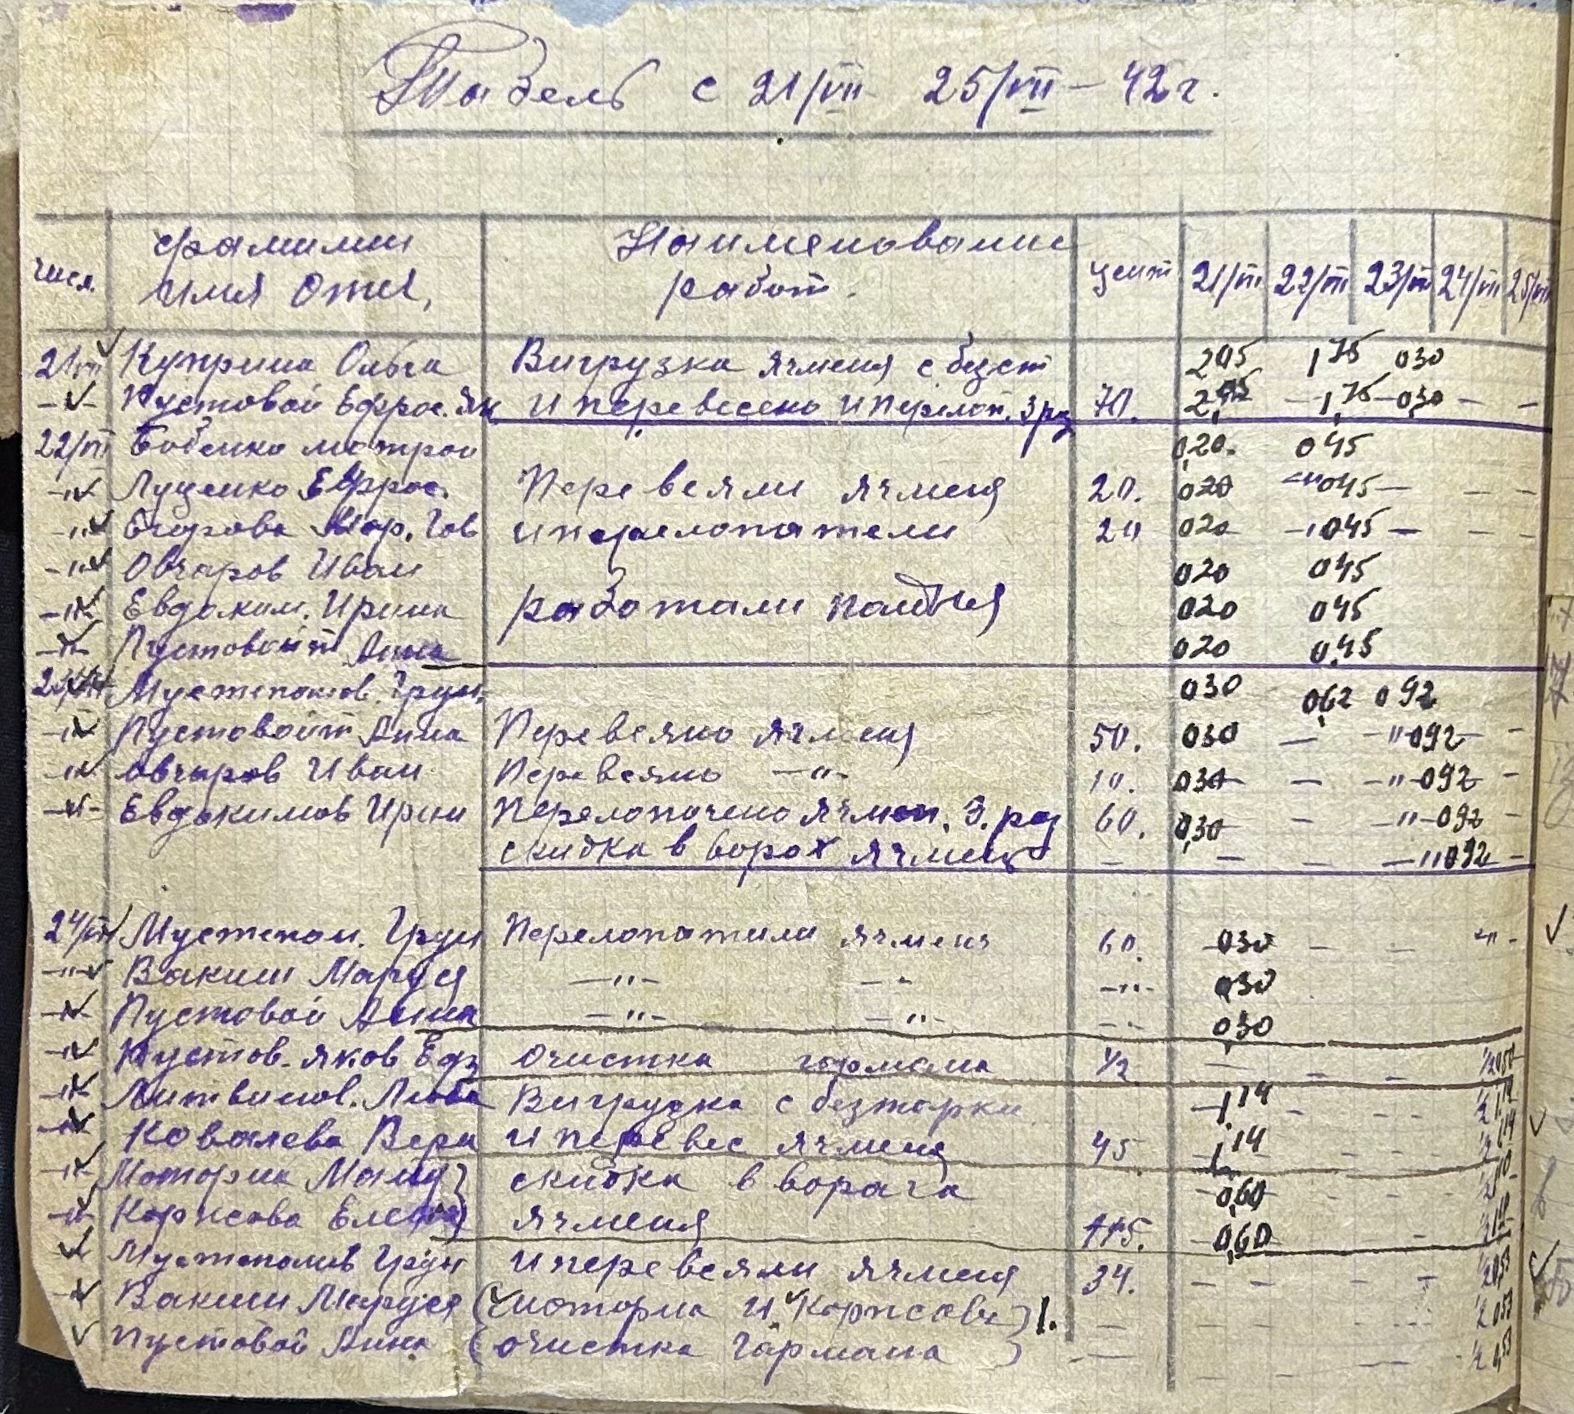 Табель с 21/VII 25/VII – 42 г.
числ. фамилии Наименование цент 21/VII 22/VII 23/VII 24/VII 25/VII
имя Отч, работ.
21/VII Куприна Ольга Вигрузка ячменя с безт 2,05 1,75 030
–"– Пустовой Ефрос. Як и перевесено и перелоп. 3 раз 70. 2,05 – 1,75 – 030 – –
22/VII Бабенко Матрон 0,20. 045
–"– Луценко Ефрос. Перевеяли ячменя 20. 020 –"045 – – –
–"– Егорова Мар. Гов и перелопатели 20 020 –"045 – – –
–"– Овчаров Иван 020 045
–"– Евдоким. Ирина работали полдня 020 045
–"– Пустовойт Анна 020 0,45
23/VII Мустепанов. Грун. 030 0,62 092
–"– Пустовойт Анна Перевеяно ячменя 50. 030 – –"–092 – –
–"– Овчаров Иван Перевеяно –"– 10. 030 – – –"–092 – –
–"– Евдокимов Ирин Перелопачено ячмен. 3. раз 60. 0,30 – – –"–092 –
скидка в ворох ячменя – – – –"092 –
24/VII Мустепан. Грун Перелопатили ячменя 60. 030 – – –"–
–"– Вакши Маруся –"– –"– –"– 030
–"– Пустовой Анна –"– –"– –"– 030
–"– Пустов. Яков Ефр очистка гармана 1/2 – – – 1/2 050
–"– Литвинов. Люба Вигрузка с безтарки 1,14 – – 1/2 1,14
–"– Ковалева Вера и перевес ячменя 45 1,14 – – 1/2 1,14
–"– Моторна скидка вворага 0,60 – – –
–"– Коржова Елена ячменя 115. 0,60 – –
Мустепанов Грун и перевеяли ячменя 34. – – – – 1/2 0,53
Вакши Маруся (Моторна и Коржова) 1. – – – 1/2 053
Пустовой Анна (очистка Гармана) – – – 1/2 0,53